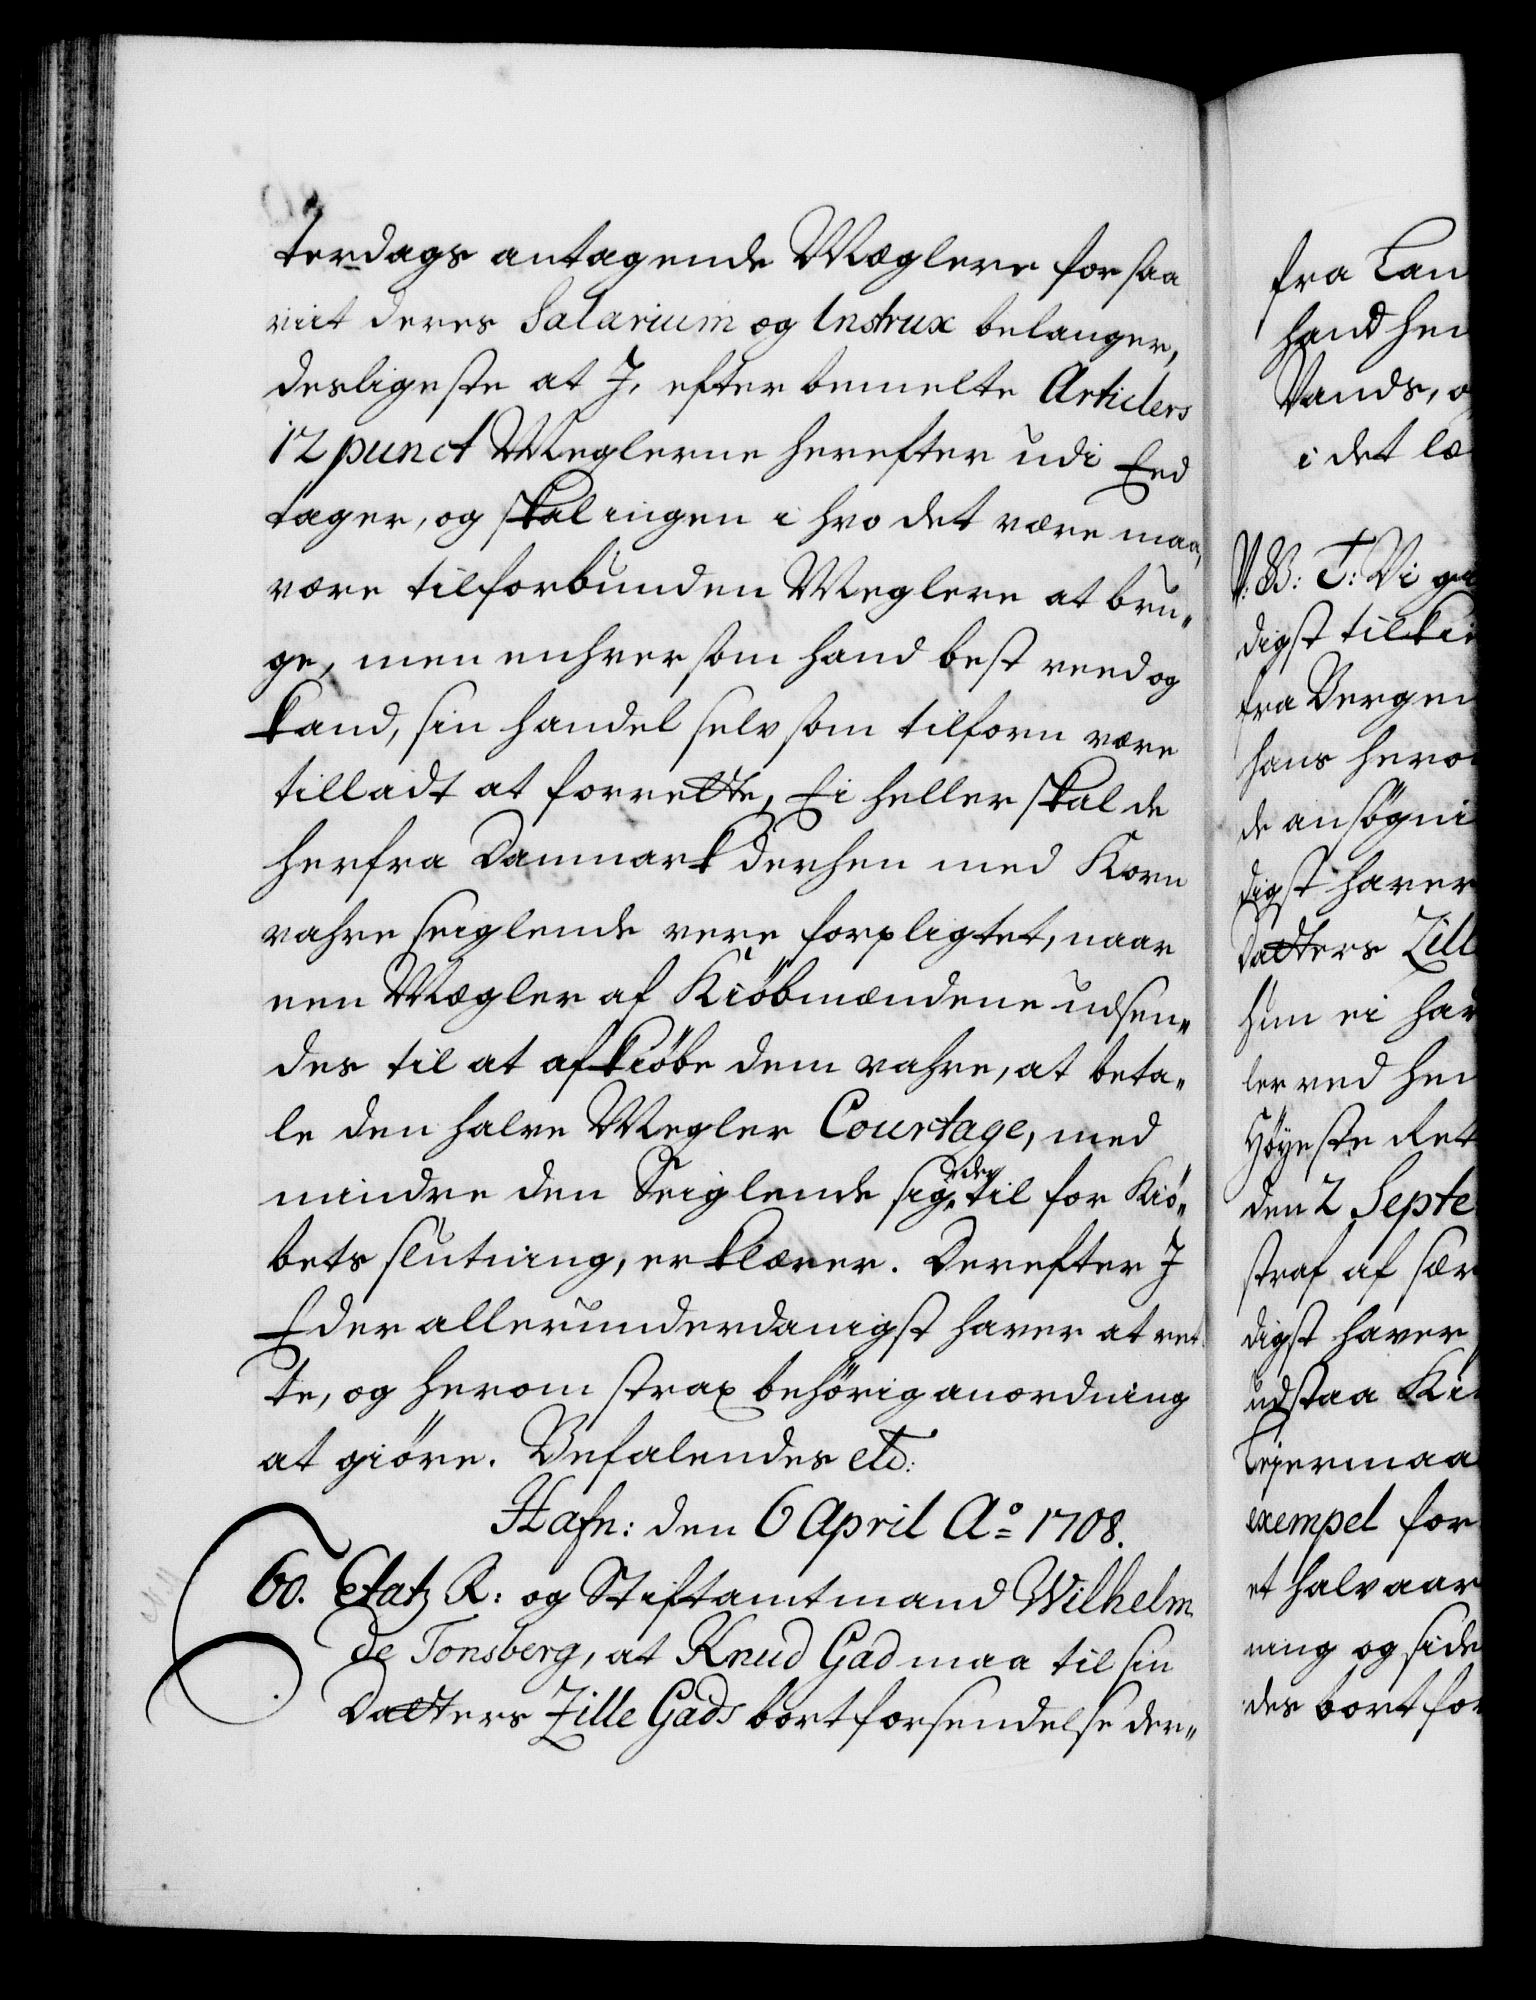 terdags antagende Mæglere for saa
viit deres Salarium og Instrux belanger,
desligeste at J, efter bemelte Articlers
12 punct Meglerne herefter udi Eed
tager, og skal ingen i hvo det være maa,
være tilforbunden Meglere at bru„
ge, men enhver som hand best veed og
kand, sin handel selv som tilforn være
tilladt at forrette, Ei heller skal de
herfra Danmark derhen med Korn
vahre seiglende vere forpligtet, naar
nen Mægler af Kiöbmændene udsen„
des til at afkiöbe dem vahre, at beta„
le den halve Megler Courtage, med
mindre den Seiglende sig der til for Kiö„
bets slutning, erklærer. Derefter J
Eder allerunderdanigst haver at ret„
te, og herom strax behörig anordning
at giöre. Befalendes etc:
Hafn: den 6 April Aº 1708.
60. Etatz R: og Stiftamtmand Wilhelm
de Tonsberg, at Knud Gad maa til sin
Datters Zille Gads bortforsendelse der„
fra Lan
hand hen
Vands, o
i det læ
V: B: T: Vi gi
digst tilkie
fra Bergen
hans hero
de ansögni
digst haver
Datters Zill
hun ei har
ler ved hen
Höyeste Ret
den 2 Septe
straf af sær
digst haver
udstaa Ki
Lejermaa
exempel for
et halv aar
ning og side
des bortfor